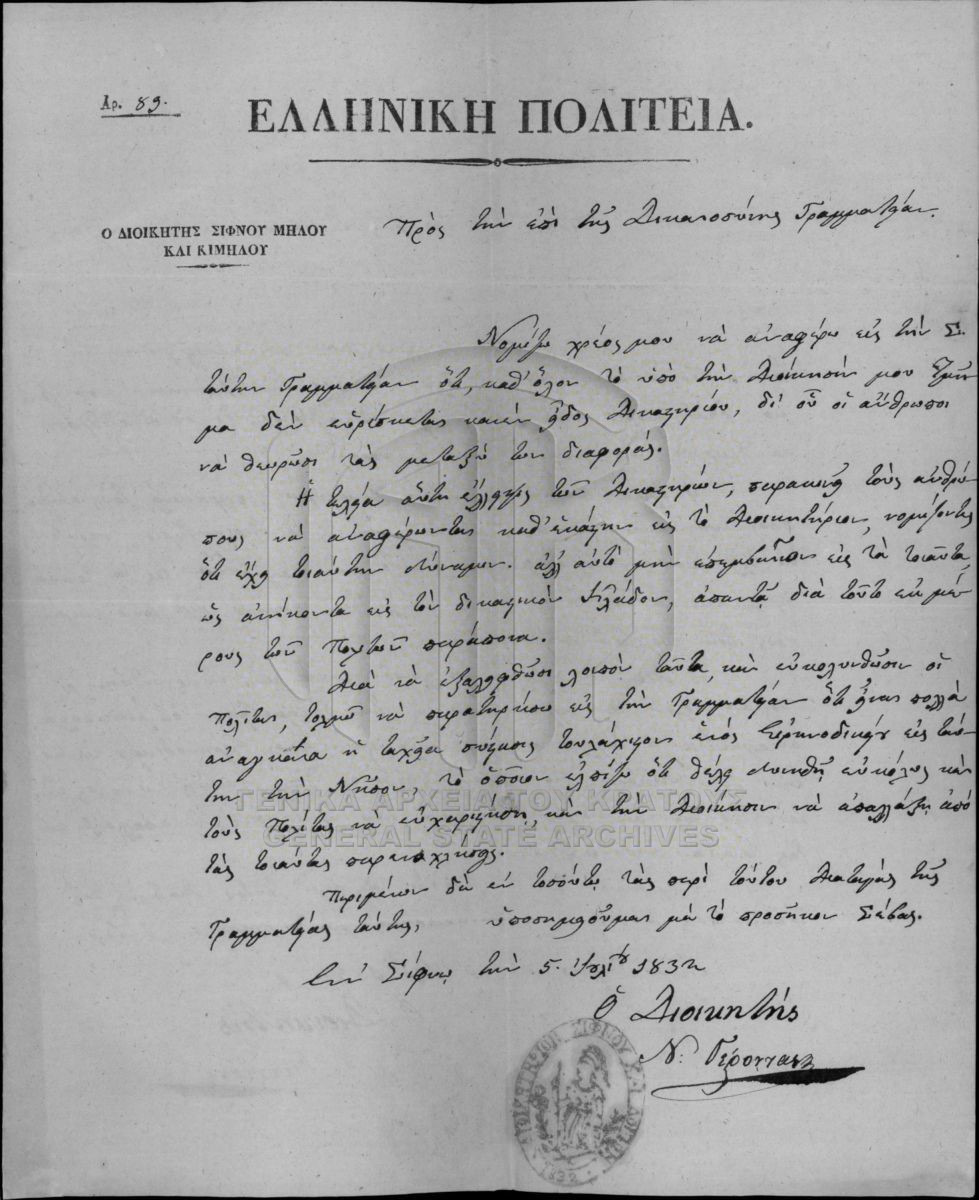 Αρ. 89.
ΕΛΛΗΝΙΚΗ ΠΟΛΙΤΕΙΑ.
Ο ΔΙΟΙΚΗΤΗΣ ΣΙΦΝΟΥ ΜΗΛΟΥ
ΚΑΙ ΚΙΜΗΛΟΥ
Πρὸς τὴν ἐπὶ τῆς Δικαιοσύνης Γραμματείαν.
Νομίζω χρέος μου νὰ ἀναφέρω εἰς τὴν Σ.
ταύτην Γραμματείαν ὅτι, καθ' ὅλον τὸ ὑπὸ τὴν Διοίκησίν μου Τμῆ
μα δὲν εὑρίσκεται κανὲν εἶδος Δικαστηρίου, δι' οὗ οἱ ἄνθρωποι
νὰ θεωρῶσι τὰς μεταξύ των διαφοράς.
Ἡ τελεία αὕτη ἔλλειψις τῶν Δικαστηρίων, παρακινεῖ τοὺς ἀνθρώ
πους νὰ ἀναφέρωνται καθ' ἑκάστην εἰς τὸ Διοικητήριον, νομίζοντες
ὅτι ἔχει τοιαύτην δύναμιν. ἀλλ' αὐτὸ μὴν ἐπεμβαῖνον εἰς τὰ τοιαῦτα,
ὡς ἀνήκοντα εἰς τὸν δικαστικὸν Κλάδον, ἀπαντᾷ διὰ τοῦτο ἐκ μέ
ρους τῶν Πολιτῶν παράπονα.
Διὰ νὰ ἐξαλειφθῶσι λοιπὸν ταῦτα, καὶ εὐκολυνθῶσιν οἱ
πολῖται, τολμῶ νὰ παρατηρήσω εἰς τὴν Γραμματείαν ὅτι εἶναι πολλὰ
ἀναγκαία ἡ ταχεῖα σύστασις τουλάχιστον ἑνὸς Εἰρηνοδικείου εἰς ταύ
την τὴν Νῆσον, τὸ ὁποῖον ἐλπίζω ὅτι θέλει δυνηθῆ εὐκόλως καὶ
τοὺς Πολίτας νὰ εὐχαριστήσῃ, καὶ τὴν Διοίκησιν νὰ ἀπαλλάξῃ ἀπὸ
τὰς τοιαύτας παρενοχλήσεις.
Περιμένων δὲ ἐν τοσούτῳ τὰς περὶ τούτου Διαταγάς τῆς
Γραμματείας ταύτης, ὑποσημειοῦμαι μὲ τὸ προσῆκον Σέβας.
Ἐν Σίφνῳ τὴν 5. Ἰουλίου 1832
Ὁ Διοικητής
Ν.
ΔΙΟΙΚΗΤΗΡΙΟΝ ΣΙΦΝΟΥ ΚΑΙ ΛΟΙΠΩΝ
1832
ΓΕΝΙΚΑ ΑΡΧΕΙΑ ΤΟΥ ΚΡΑΤΟΥΣ
GENERAL STATE ARCHIVES